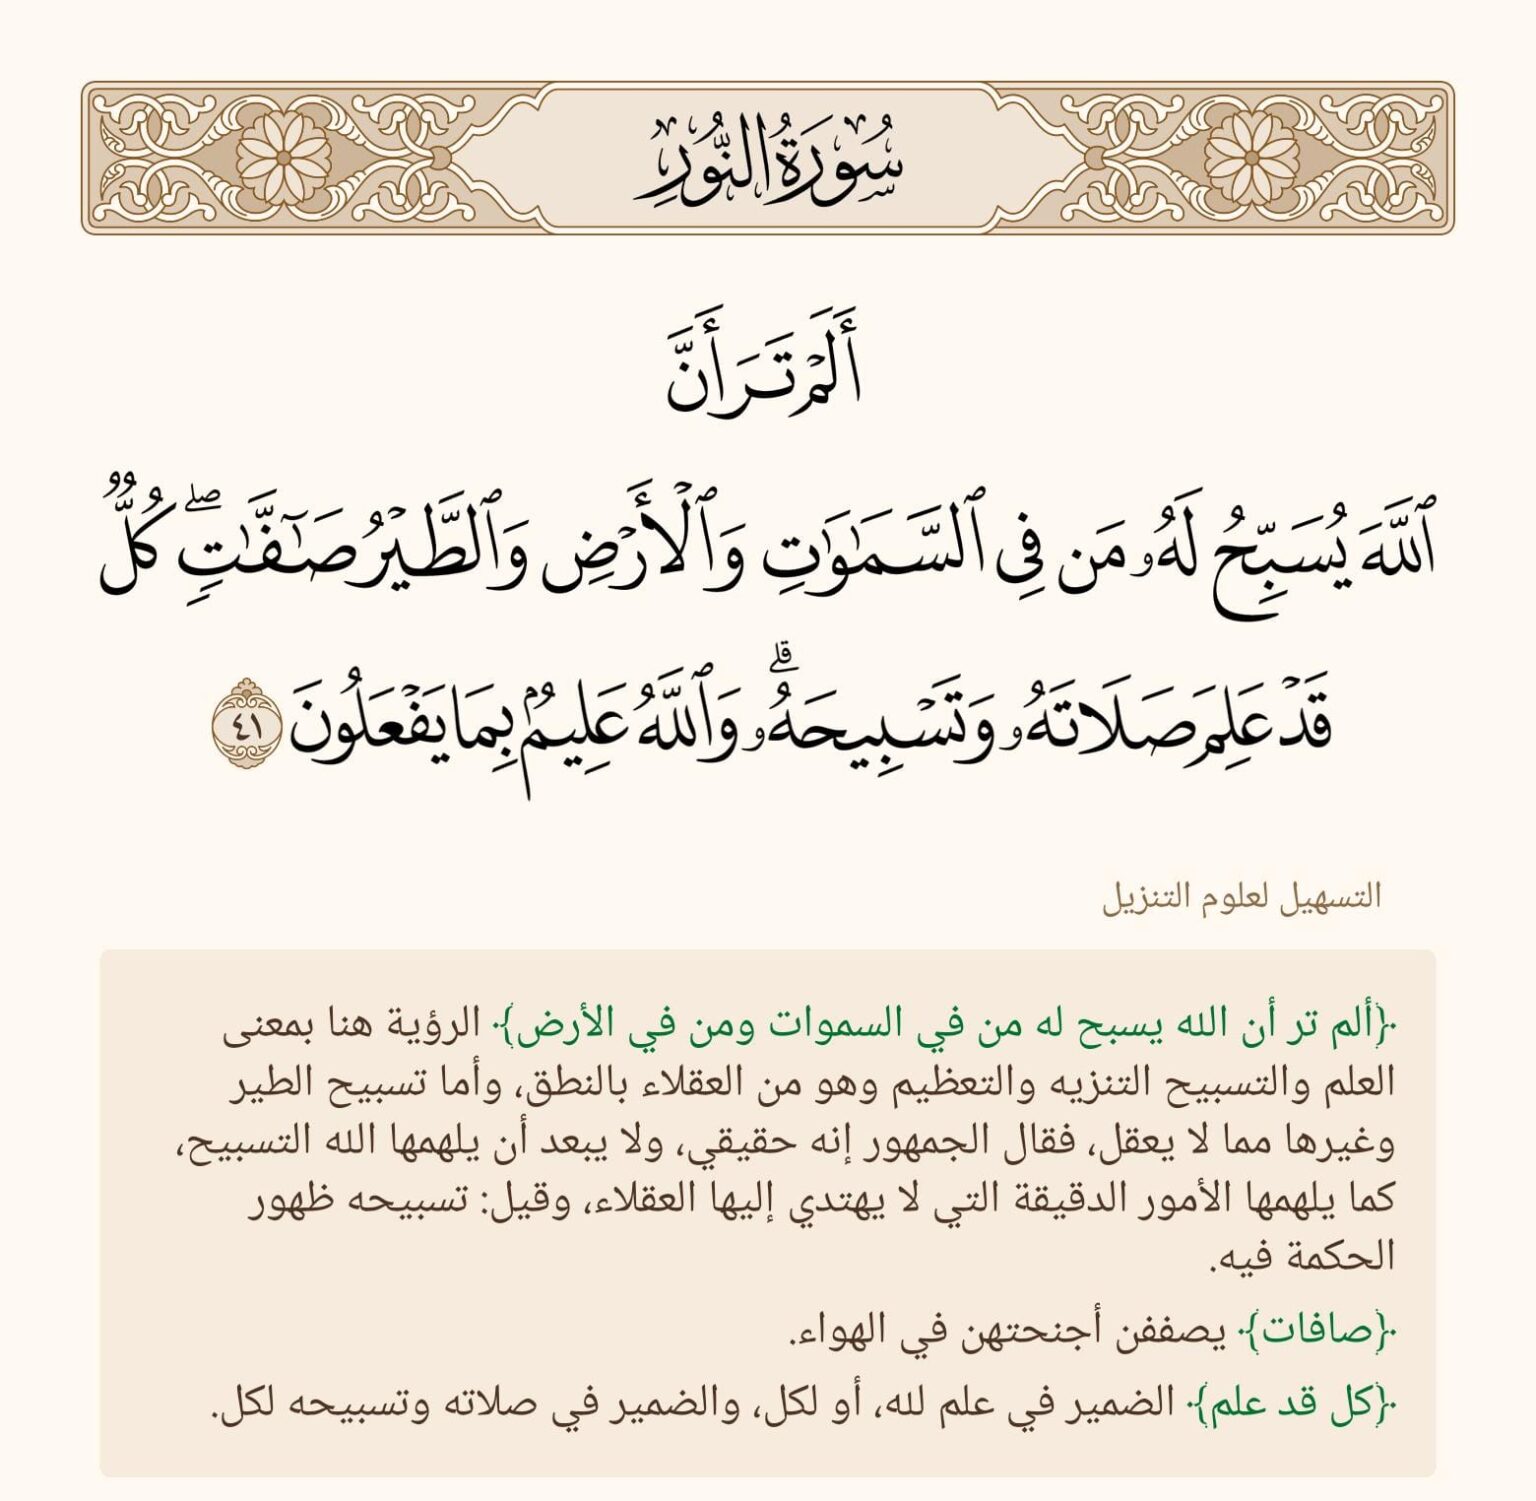 سُورَةُ النُّورِ
أَلَمۡ تَرَ أَنَّ
ٱللَّهَ يُسَبِّحُ لَهُۥ مَن فِي ٱلسَّمَٰوَٰتِ وَٱلۡأَرۡضِ وَٱلطَّيۡرُ صَٰٓفَّٰتٖۖ كُلّٞ
قَدۡ عَلِمَ صَلَاتَهُۥ وَتَسۡبِيحَهُۥۗ وَٱللَّهُ عَلِيمُۢ بِمَا يَفۡعَلُونَ ٤١
التسهيل لعلوم التنزيل
﴿ألم تر أن الله يسبح له من في السموات ومن في الأرض﴾ الرؤية هنا بمعنى
العلم والتسبيح التنزيه والتعظيم وهو من العقلاء بالنطق، وأما تسبيح الطير
وغيرها مما لا يعقل، فقال الجمهور إنه حقيقي، ولا يبعد أن يلهمها الله التسبيح،
كما يلهمها الأمور الدقيقة التي لا يهتدي إليها العقلاء، وقيل: تسبيحه ظهور
الحكمة فيه.
﴿صافات﴾ يصففن أجنحتهن في الهواء.
﴿كل قد علم﴾ الضمير في علم لله، أو لكل، والضمير في صلاته وتسبيحه لكل.